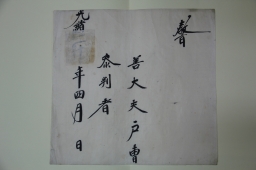 善大夫戶曹
叅判者
光緖 年四月 日